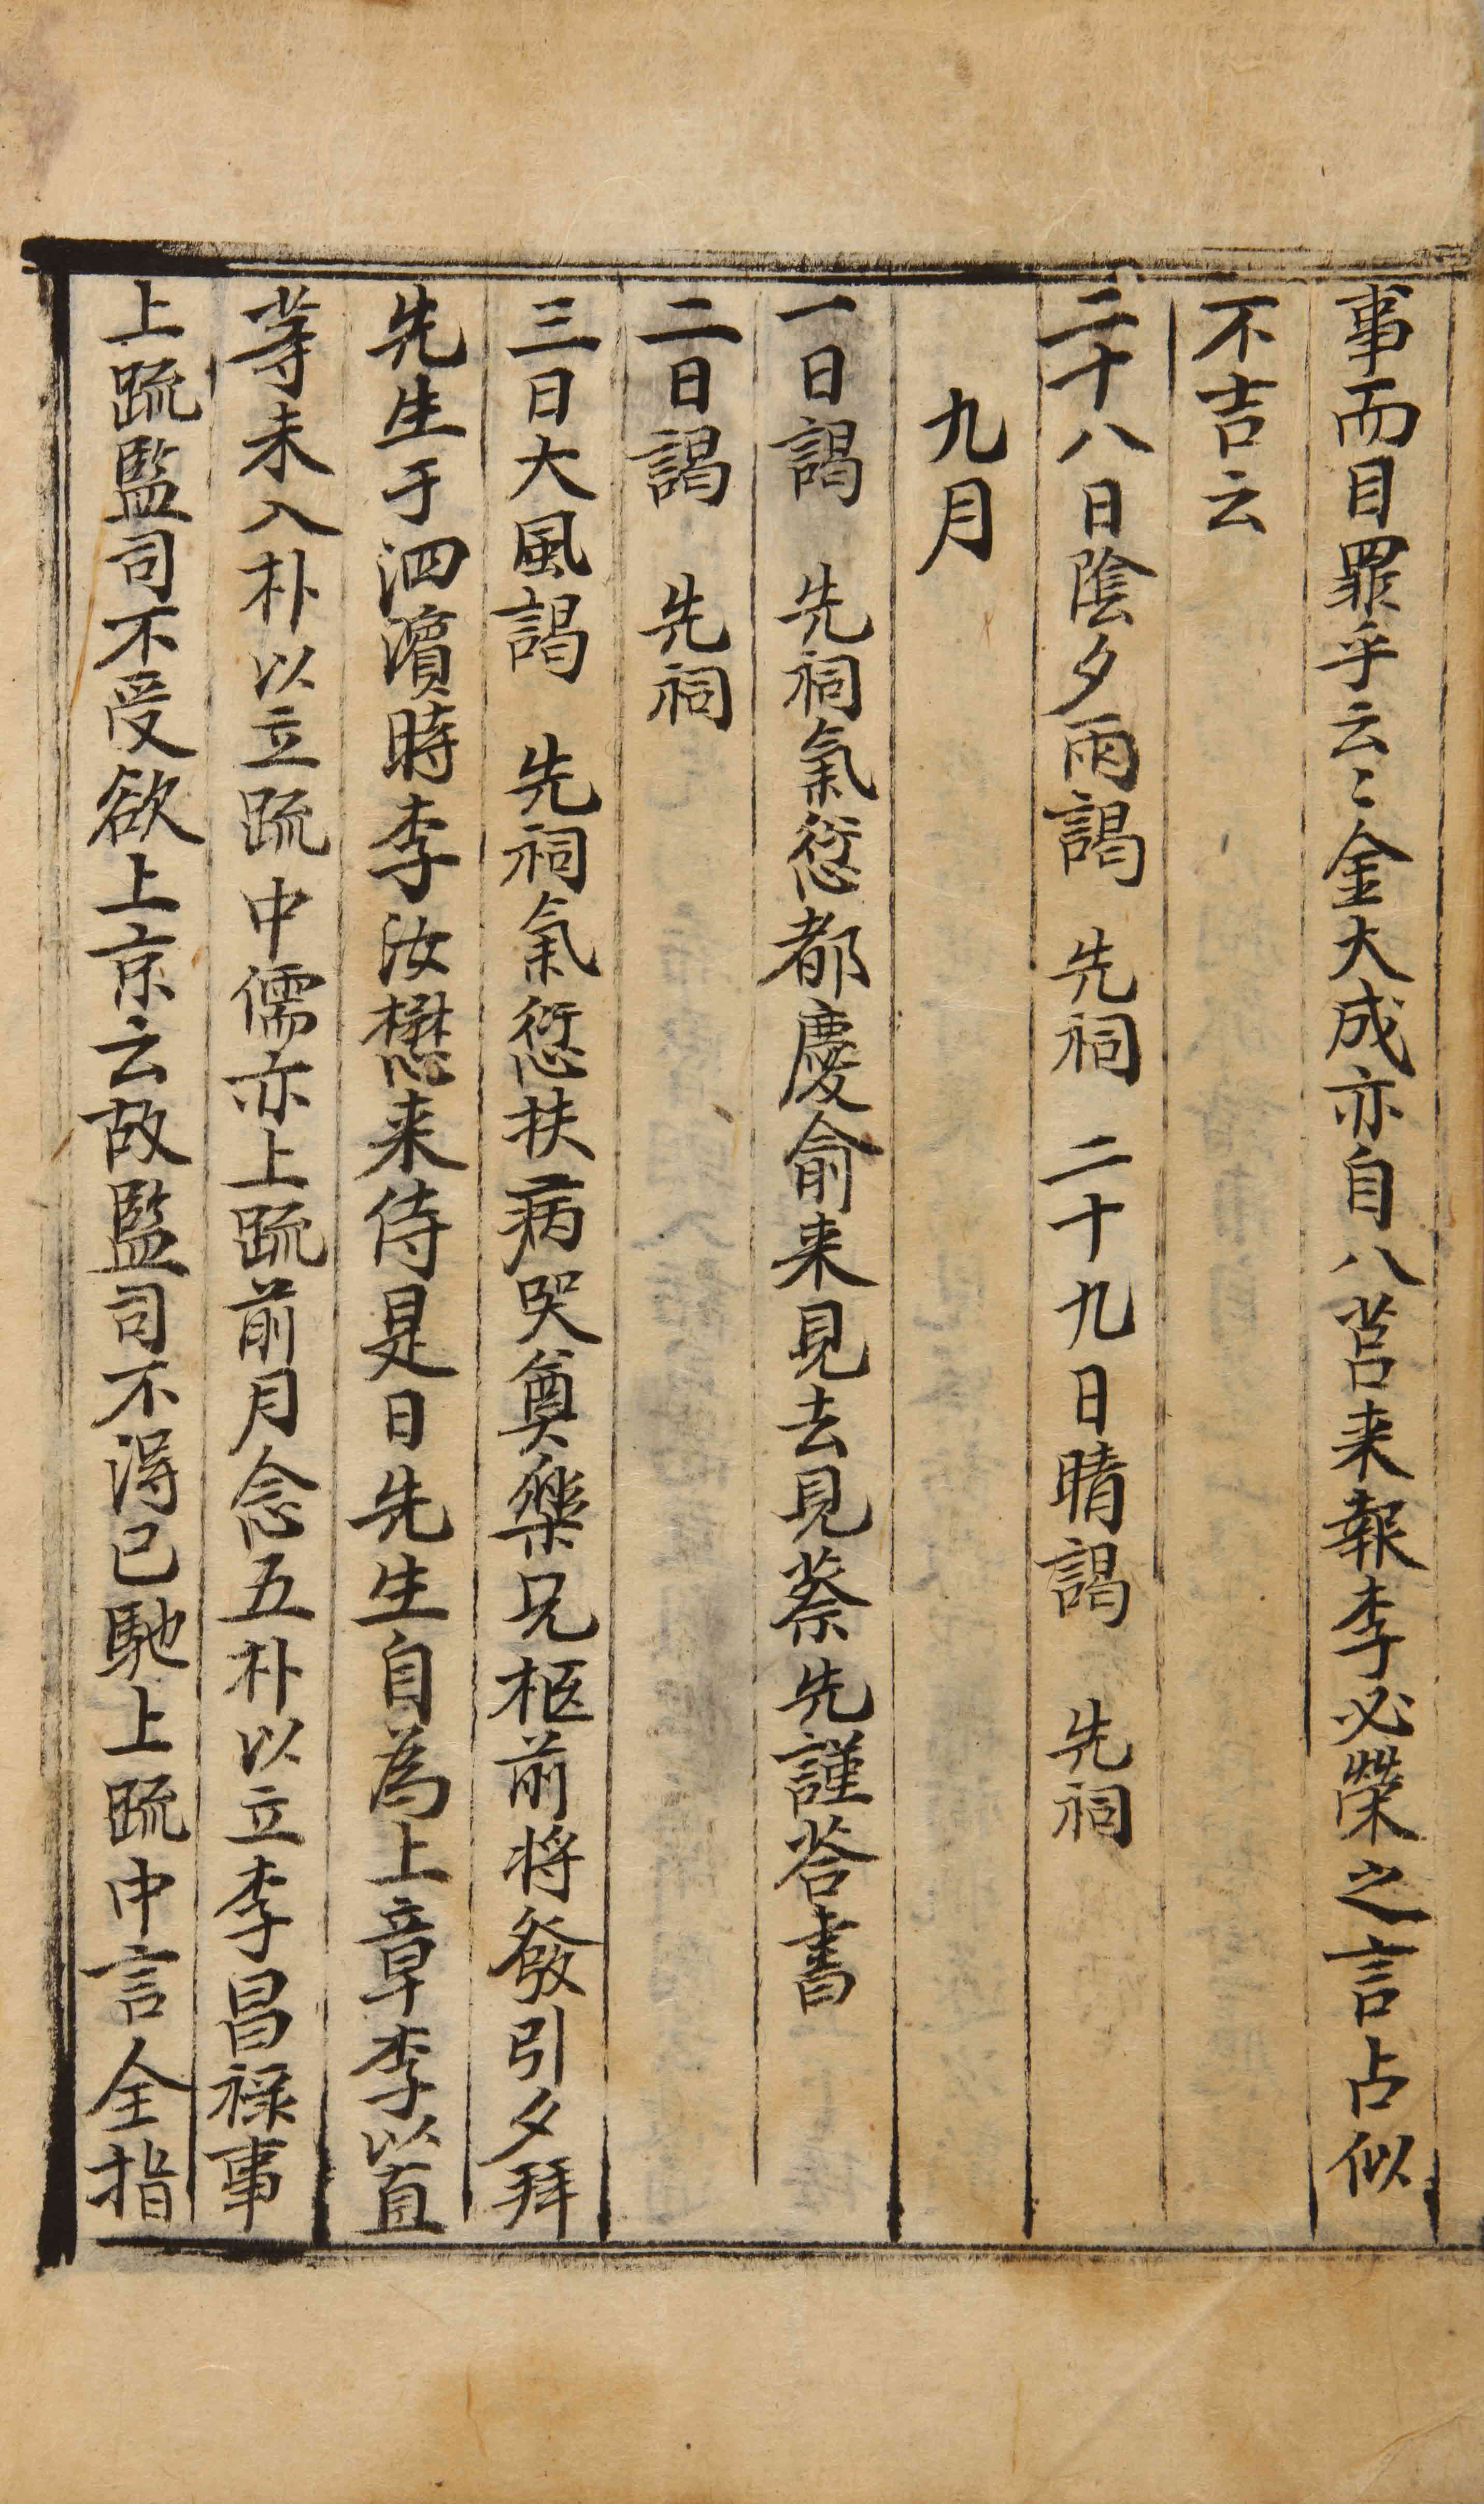 事而目罪乎云〻金大成亦自八莒来報李必榮之言占似
不吉云
二十八日陰夕雨謁　先祠　二十九日晴謁　先祠
九月
一日謁　先祠氣愆都慶俞来見去見蔡先謹答書
二日謁　先祠
三日大風謁　先祠氣愆扶病哭奠樂兄柩前将發引夕拜
先生于泗濱時李汝懋来侍是日先生自為上章李以直
等未入朴以立䟽中儒亦上䟽前月念五朴以立李昌禄事
上䟽監司不受欲上京云故監司不得已馳上䟽中言全指